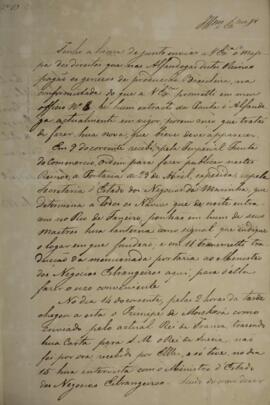 Illmo Exmo Snr
Tenho a honra de junto enviar a V.Exa o Mappa
dos direitos que nas Alfandegas deste Reino
pagão os generos de producção Brasileira, na
conformidade do que a V.Exa prometti em meu
officio Nº 8, he hum extracto da Pauta d'Alfandega
actualmente em vigor, porem creio que tratão
de fazer hua nova, que breve deve apparecer.
Em 9 do corrente recebi pela Imperial Junta
do Commercio, ordem para fazer publicar neste
Reino, a Portaria de 23 de Abril, expedida pela
Secretaria d'Estado dos Negocios da Marinha, que
determina a todos os Navios que de noite entrarem
no Rio de Janeiro, ponhão em hum de seus
mastros hua lanterna como signal que indique
o logar em que fundeão, e em 11 transmetti
traducção da mencionada portaria ao Ministro
dos Negocios Estrangeiros aqui para d'ella
fazer o uso conveniente.
No dia 14 do corrente, pelas 2 horas da tarde
chegou a esta o Principe de
Enviado pelo actual Rei de França trazendo
hua Carta para S. M. o Rei da Suecia, não
foi por ora recebido por Elle, e só teve no dia
15 hua intervista com o Ministro d'Estado
dos Negocios Estrangeiros.